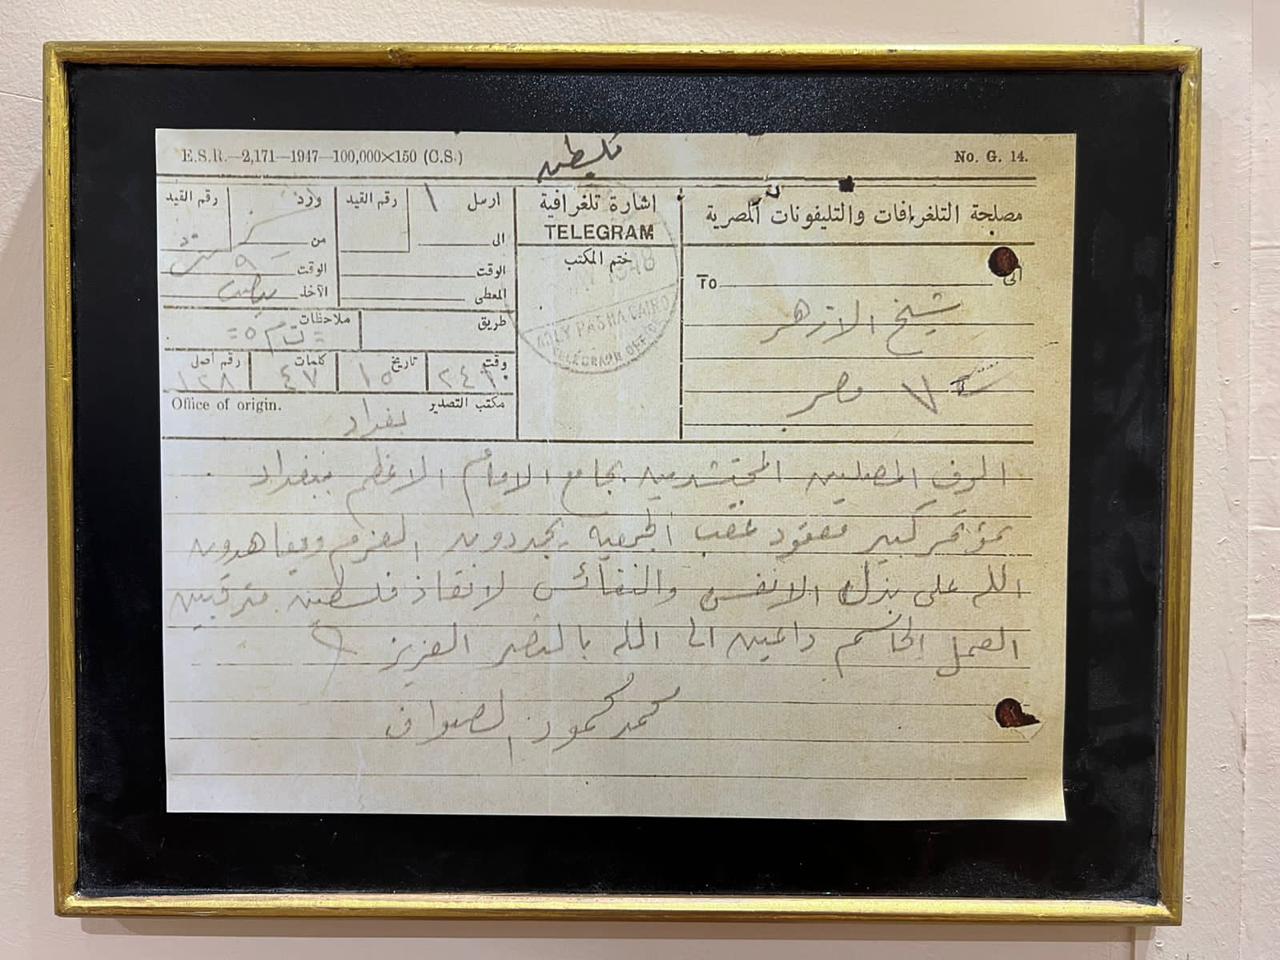 فلسطين
E.S.R.—2,171—1947—100,000×150 (C.S.)
No. G. 14.
مصلحة التلغرافات والتليفونات المصرية
الى
To
شيخ الازهر
مصر
اشارة تلغرافية
TELEGRAM
ختم المكتب
1948
ADLY PASHA CAIRO
TELEGRAPH OFFICE
ارسل
رقم القيد
الى
الوقت
المعطى
ورد
رقم القيد
من
الوقت
الآخذ
طريق
ملاحظات
وقت
تاريخ ١٥
كلمات ٤٧
رقم أصل ١٢٨
مكتب التصدير
Office of origin.
بغداد
الوف المصلين المحتشدين بجامع الامام الاعظم ببغداد
بمؤتمر كبير معقود عقب الجمعة يجددون العزم ويعاهدون
الله على بذل الانفس والنفائس لانقاذ فلسطين مترقبين
العمل الحاسم داعين الى الله بالنصر العزيز
محمد محمود الصواف